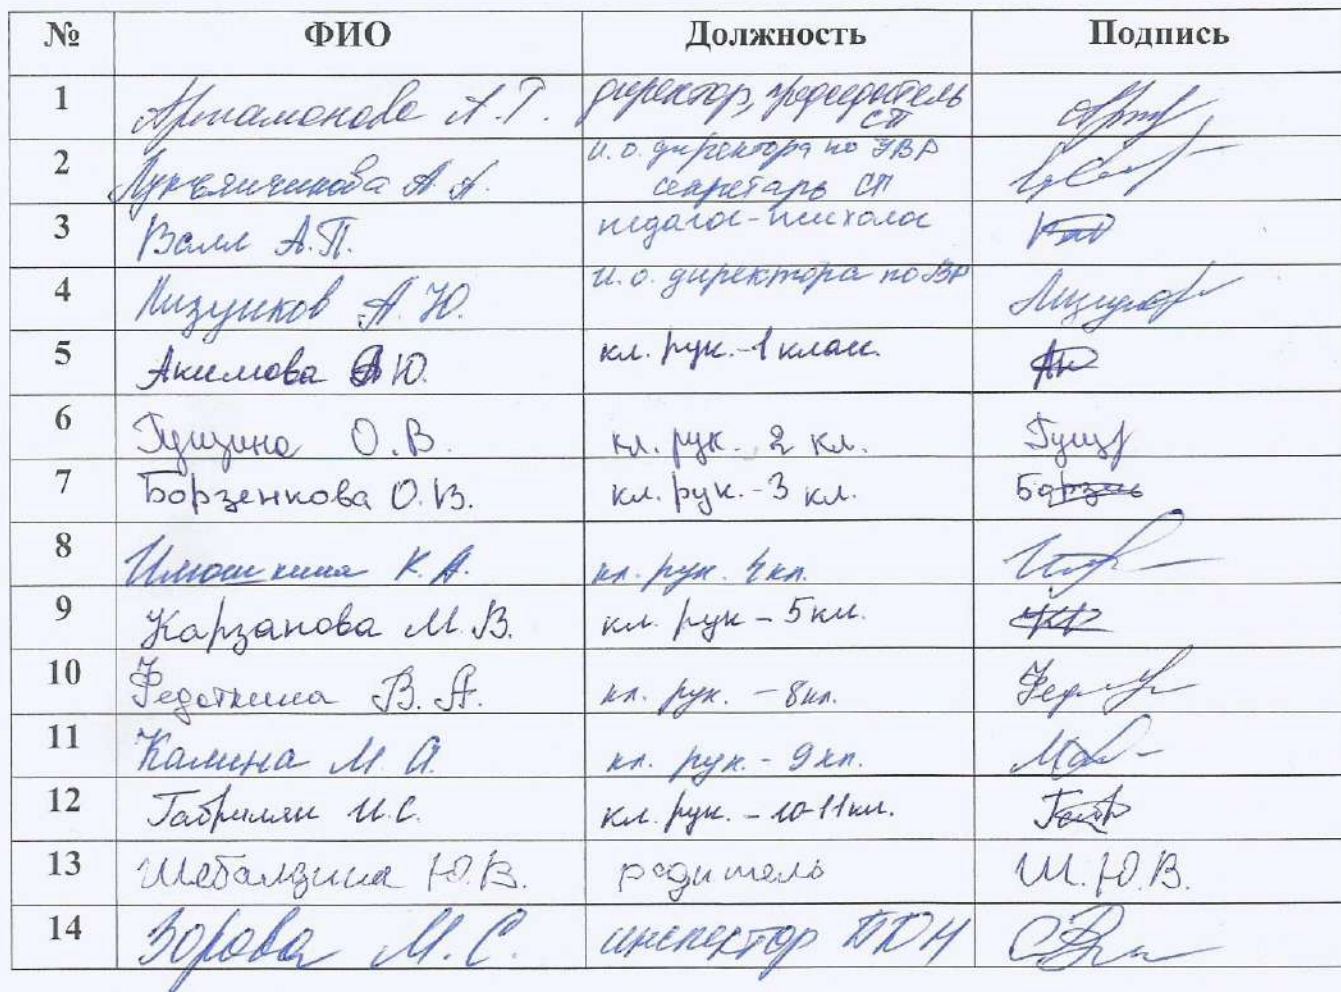 № ФИО Должность Подпись
1 Артамонова А.Г. директор, председатель СП
2 Лукьянчикова А.А. и.о. директора по УВР секретарь СП
3 Валл А.П. педагог-психолог
4 Лизунков А.Ю. и.о. директора по ВР
5 Акимова А.Ю. кл. рук.-1 класс.
6 Гущина О.В. кл. рук. - 2 кл. Гущ
7 Борзенкова О.В. кл. рук.-3 кл. Борзень
8 Илюшкина К.А. кл. рук. 4 кл.
9 Карзанова М.В. кл. рук - 5 кл.
10 Федоткина В.А. кл. рук. - 8 кл.
11 Калина М.А. кл. рук. - 9 кл.
12 Габрилян И.С. кл. рук. - 10-11 кл.
13 Шебалдина Ю.В. родитель Ш.Ю.В.
14 Зорова М.С. инспектор ПДН